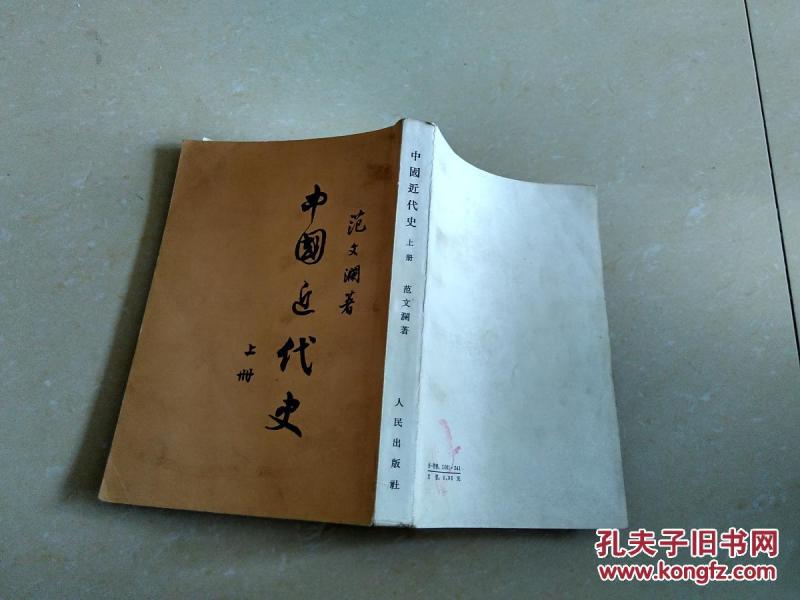 范文瀾著
中國近代史
上冊
中國近代史 上冊 范文瀾著 人民出版社
孔夫子旧书网
www.kongfz.com